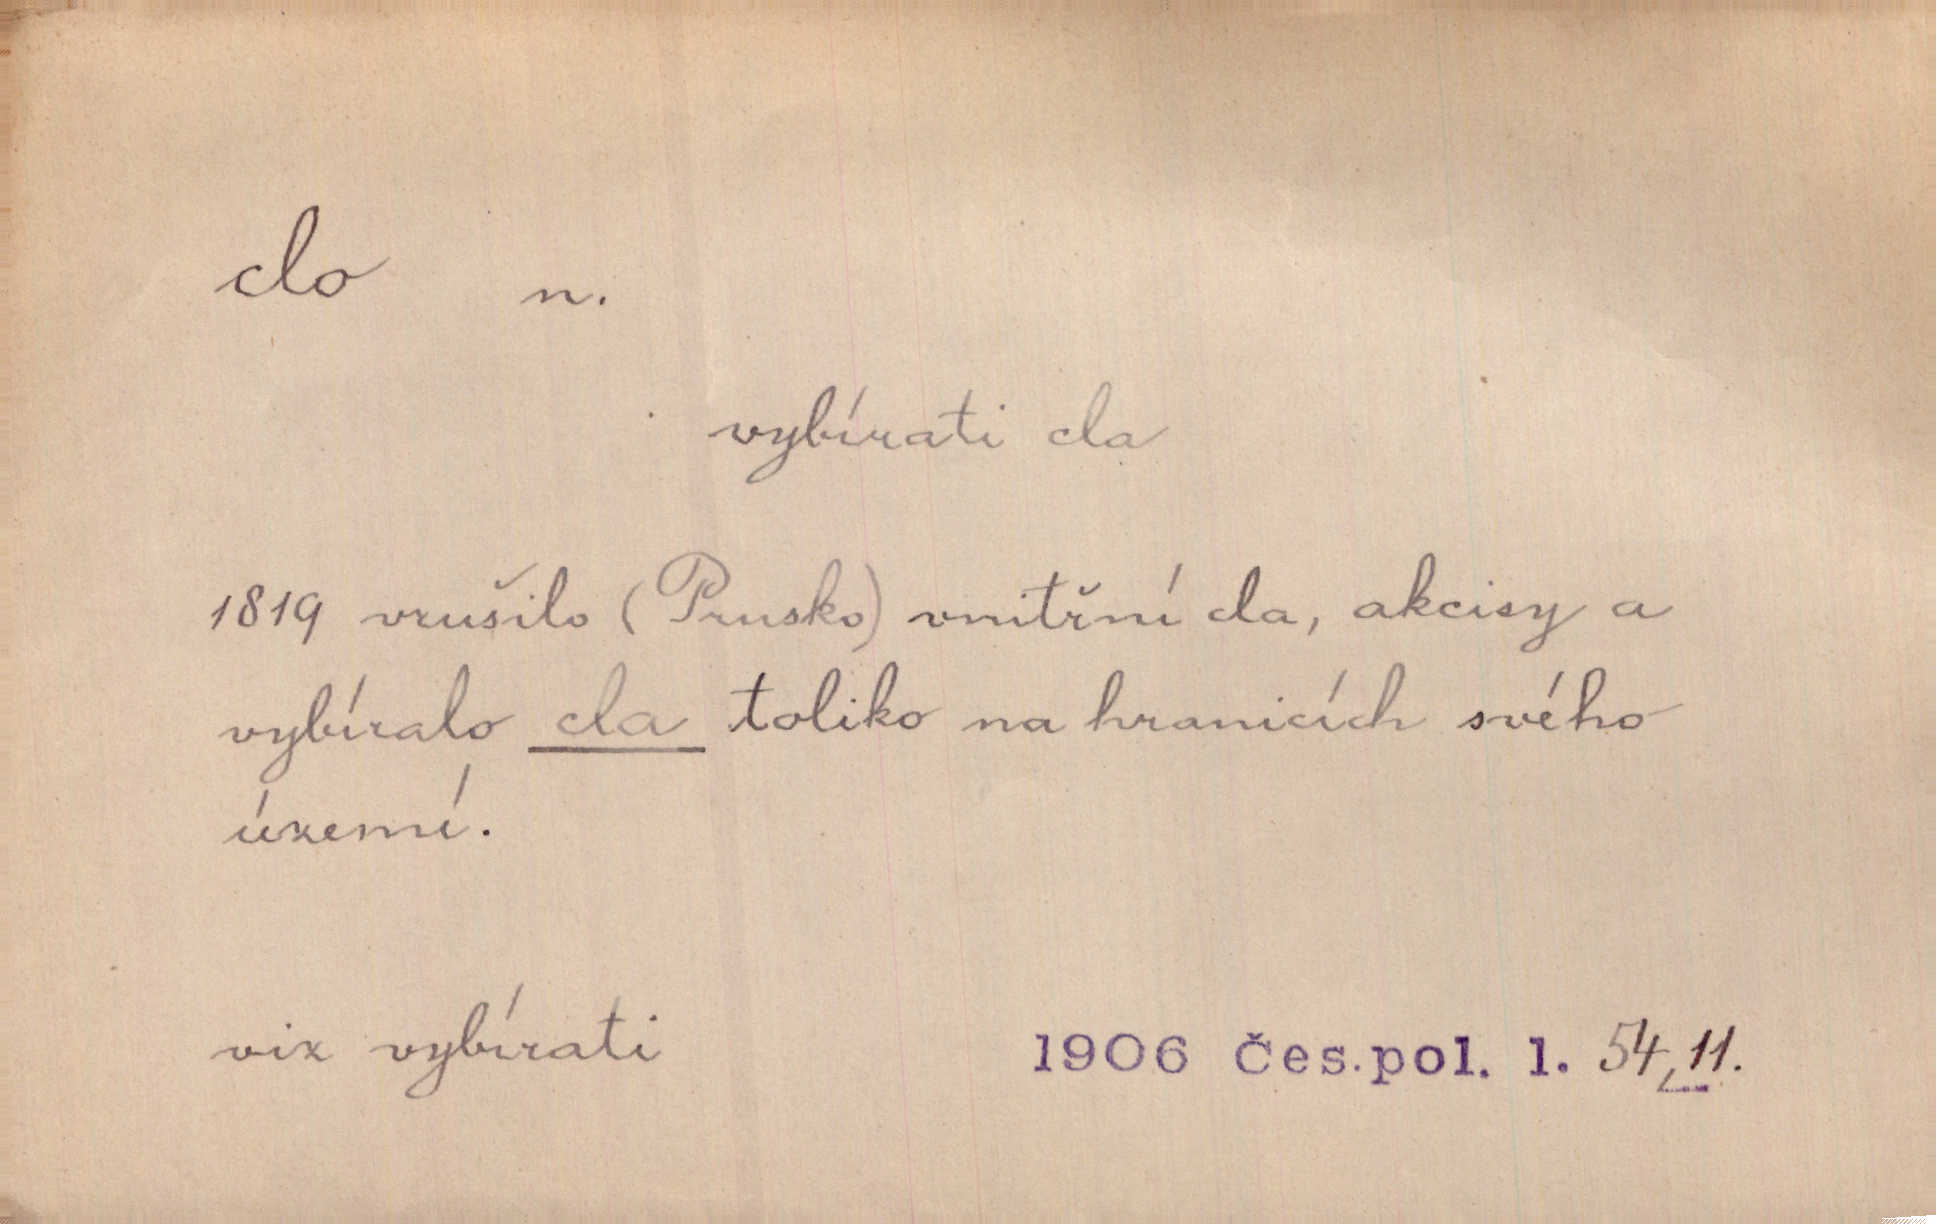 clo n.
vybírati cla
1819 zrušilo (Prusko) vnitřní cla, akcisy a
vybíralo cla toliko na hranicích svého
území.
viz vybírati 1906 čes. pol. l. 54, 11.